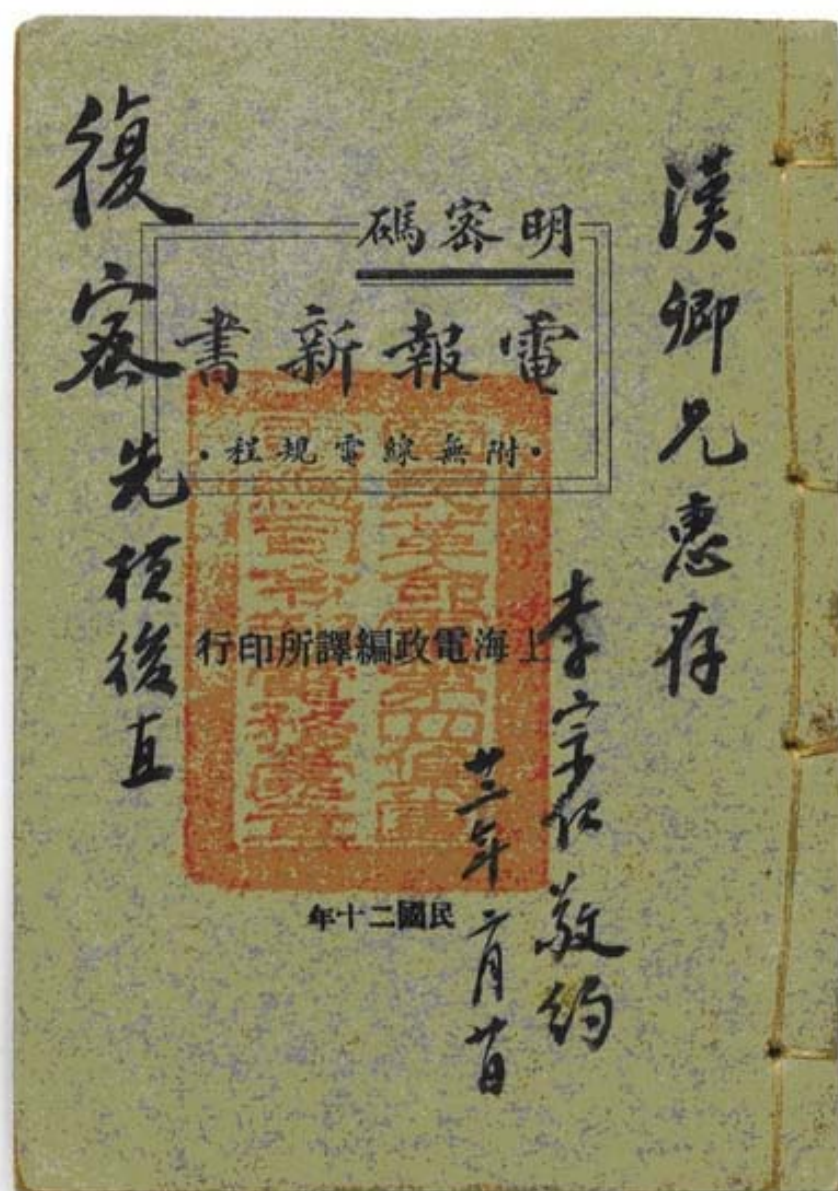 漢卿兄惠存
李宗仁敬約
廿三年二月廿日
明密碼
電報新書
·附無線電規程·
上海電政編譯所印行
民國二十年
復密先橫後直